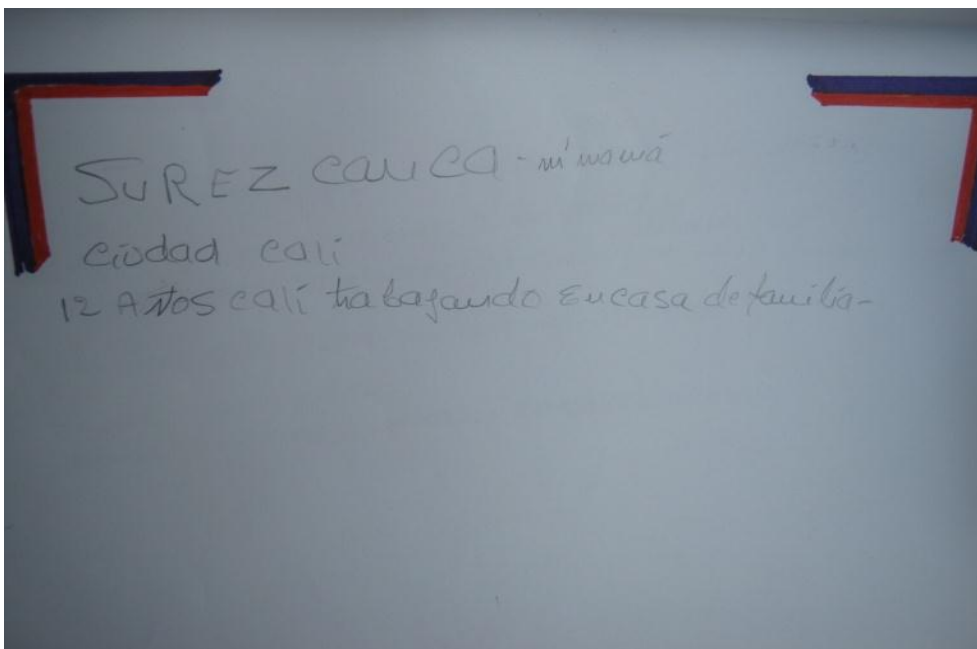 SUREZ CAUCA - mi mamá
ciudad cali
12 AÑOS cali trabajando En casa de familia-